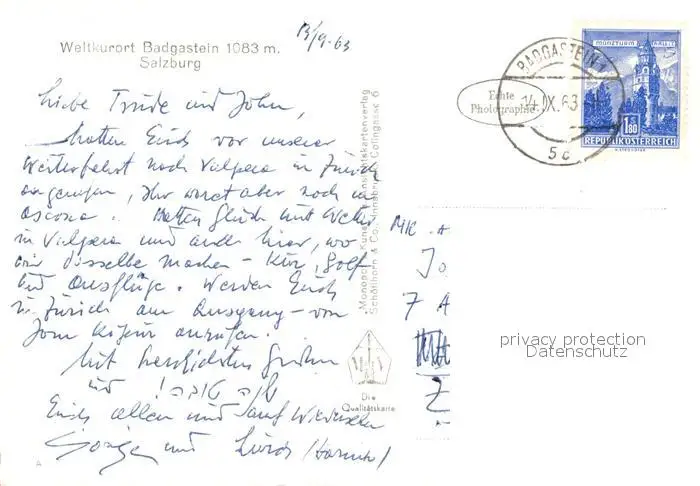 13/9.63
Weltkurort Badgastein 1083 m.
Salzburg
Liebe Trude und John,
hatten Euch vor unserer
Weiterfahrt nach Vulpera in Zürich
angerufen, Ihr waret aber noch in
Ascona. Hatten Glück mit Wetter
in Vulpera und auch hier, wo
wir dasselbe machen - Kur, Golf
und Ausflüge. Werden Euch
in Zürich am Ausgang - von
Jom Kipur anrufen.
Mit herzlichsten Grüßen
und שנה טובה!
Euch allen und auf Wiedersehen
und
Monopol - Kunst- u. Ansichtskartenverlag
Schöllhorn & Co., Innsbruck, Colingasse 6
Die
Qualitätskarte
A
Echte
Photographie
BADGASTEIN 1
14.IX.63
5c
MÜNZTURM HALL I. T.
1.80
REPUBLIK ÖSTERREICH
MR. A
Jo
7 A
Z
privacy protection
Datenschutz